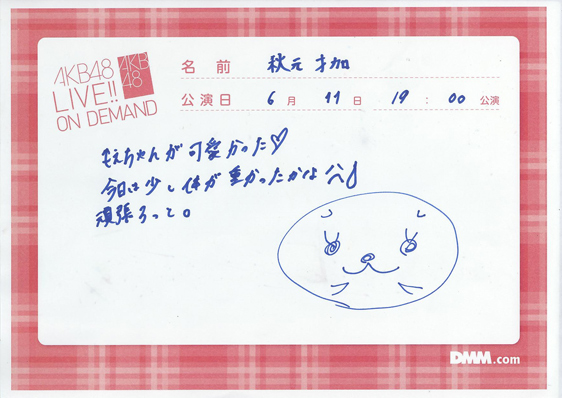 AKB48
LIVE!!
ON DEMAND
AKB
48
名前 秋元才加
公演日 6月 11日 19:00 公演
もえちゃんが可愛かった♡
今日は少し体が重かったかな
頑張ろっと。
DMM.com